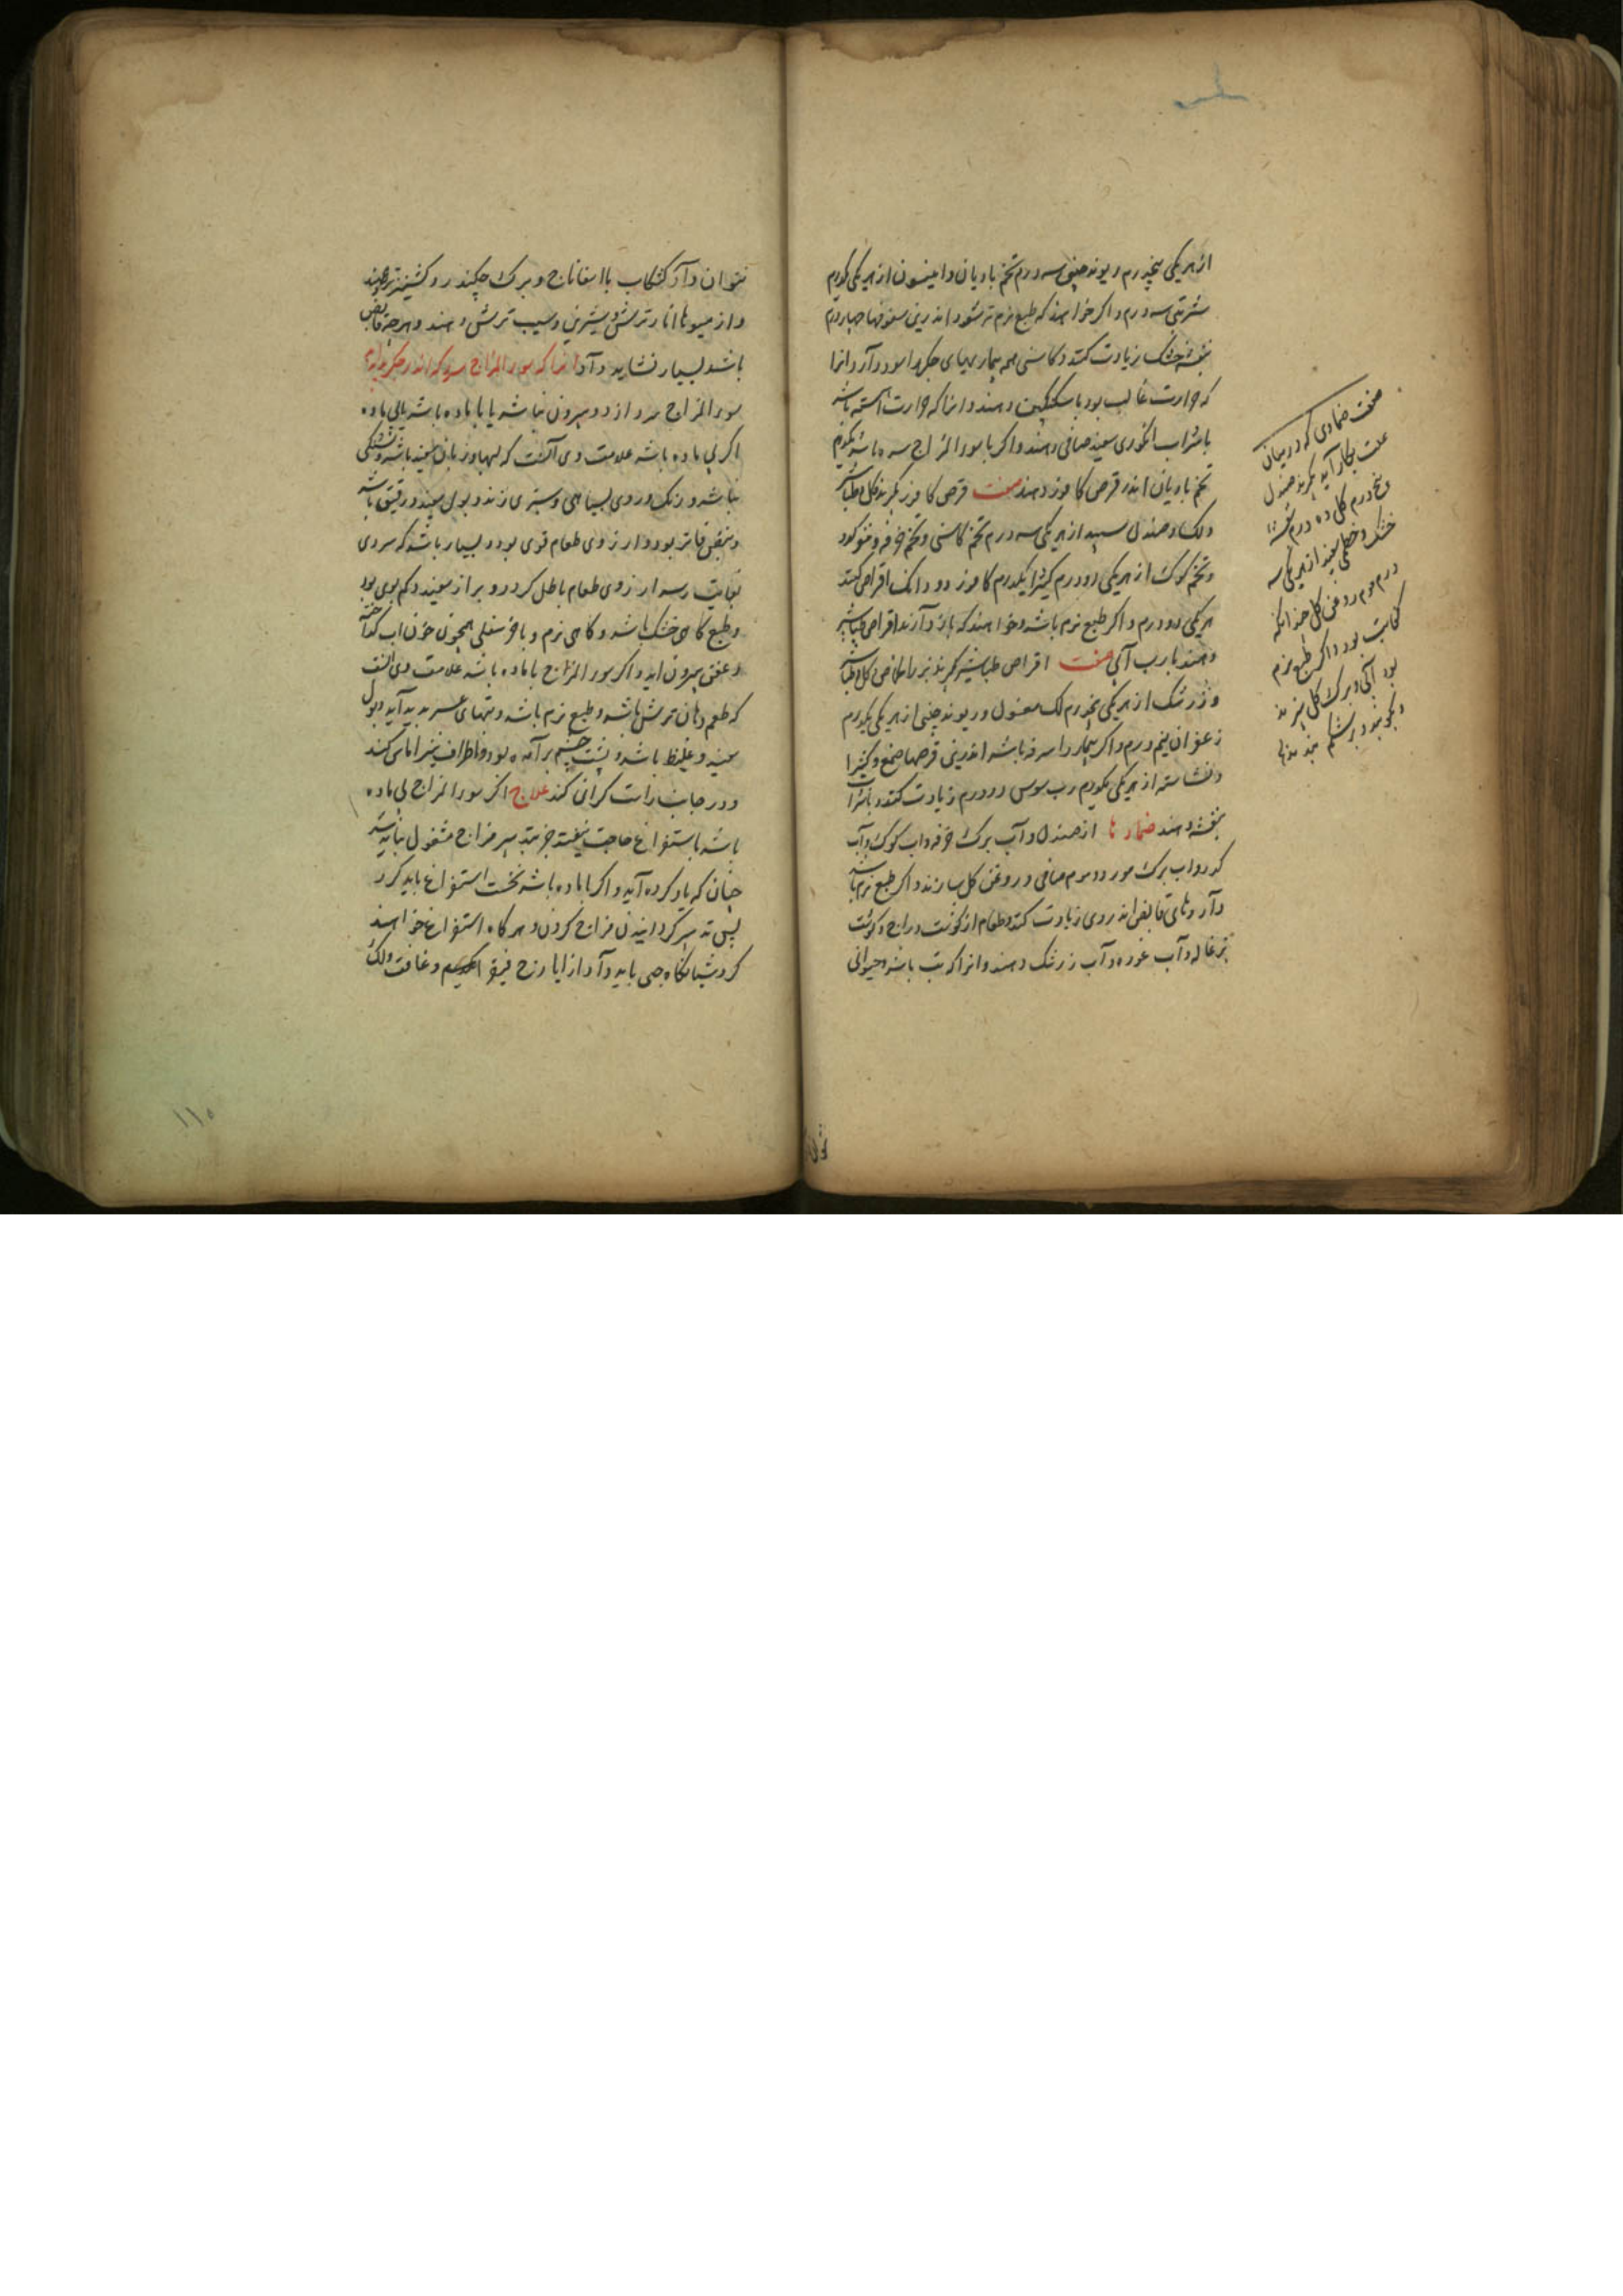 از هر یکی پنجدرم ریوند چینی سه درم تخم بادیان و انیسون از هر یکی یکدرم
شربتی سه درم و اگر خواهند که طبع نرم تر شود اندرین سفوفها چهاردرم
بنفشه خشک زیادت کنند و کاسنی همه بیماریهای جگر را سود دارد و انرا
که حرارت غالب بود با سکنگبین دهند و انرا که حرارت آهسته باشد
با شراب انگوری سپید صافی دهند و اگر با سوء المزاج سده باشد یکدرم
تخم بادیان اندر قرص کافور دهند صفت قرص کافور بگیرند گل و طباشیر
و لک و صندل سپید از هر یکی سه درم تخم کاسنی و تخم خرفه و مغز کدو
و تخم کوک از هر یکی دو درم کتیرا یکدرم کافور دو دانک اقراص کنند
هر یکی دو درم و اگر طبع نرم باشد و خواهند که باز دارند اقراص طباشیر
دهند با رب آبی صفت اقراص طباشیر بگیرند گل و طباشیر
و زرشک از هر یکی پنجدرم لک مغسول و ریوند چینی از هر یکی یکدرم
زعفران نیم درم و اگر بیمار را سرفه باشد اندرین قرصها صمغ و کتیرا
و نشاسته از هر یکی یکدرم رب سوس دو درم زیادت کنند و با شراب
بنفشه دهند ضمادها از صندل و آب برک خرفه و آب کوک و آب
کدو و آب برک مورد و موم صافی و روغن گل سازند و اگر طبع نرم باشد
داروهای قابض اندر وی زیادت کنند و طعام از گوشت دراج و گوشت
بزغاله و آب غوره و آب زرشک دهند و انرا که تب باشد حیوانی
صفت ضمادی که درین
علت بکار آید بگیرند صندل
پنجدرم گل ده درم بنفشه
خشک و خطمی سپید از هر یکی سه
درم موم روغن گل چندانکه
کفایت بود و اگر طبع نرم
بود آبی و برک گل بپزند
و بکوبند و بر شکم نهند
نتوان داد کشکاب با اسفاناخ و برک چکندر و کشنیز تر دهند
و از میوها انار ترش و شیرین و سیب ترش دهند و هر چه قابض
باشد بسیار نشاید داد انرا که سوء المزاج سرد که اندر جگر
سوء المزاج سرد از دو بیرون نباشد یا با ماده باشد یا بی ماده
اگر بی ماده باشد علامت وی آنست که لبها و زبان سپید باشد و تشنگی
نباشد و رنک روی بسیاهی و سبزی زند و بول سپید و رقیق باشد
و نبض فاتر بود و ارزوی طعام قوی بود و بسیار باشد که سردی
بغایت رسد ارزوی طعام باطل کردد و براز سپید و کم بوی بود
و طبع کاهی خشک باشد و کاهی نرم و باخر سفلی همچون خون اب
و عفن بیرون اید و اگر سوء المزاج با ماده باشد علامت وی انست
که طعم دهان ترش باشد و طبع نرم باشد و تبهای بدید آید و بول
سپید و غلیظ باشد و پشت چشم برآمده بود و اطراف نیز اماس کند
و در جانب راست گرانی کند علاج اگر سوء المزاج بی ماده
باشد باستفراغ حاجت نیفتد جز بتدبیر مزاج مشغول نباید شد
چنان که یاد کرده آید و اگر با ماده باشد نخست استفراغ باید کرد
پس تدبیر کردانیدن مزاج کردن و هر کاه استفراغ خواهند
کرد شبانکاه حبی باید داد از ایارج فیقرا و غافت و لک
۱۱۵
نتوان